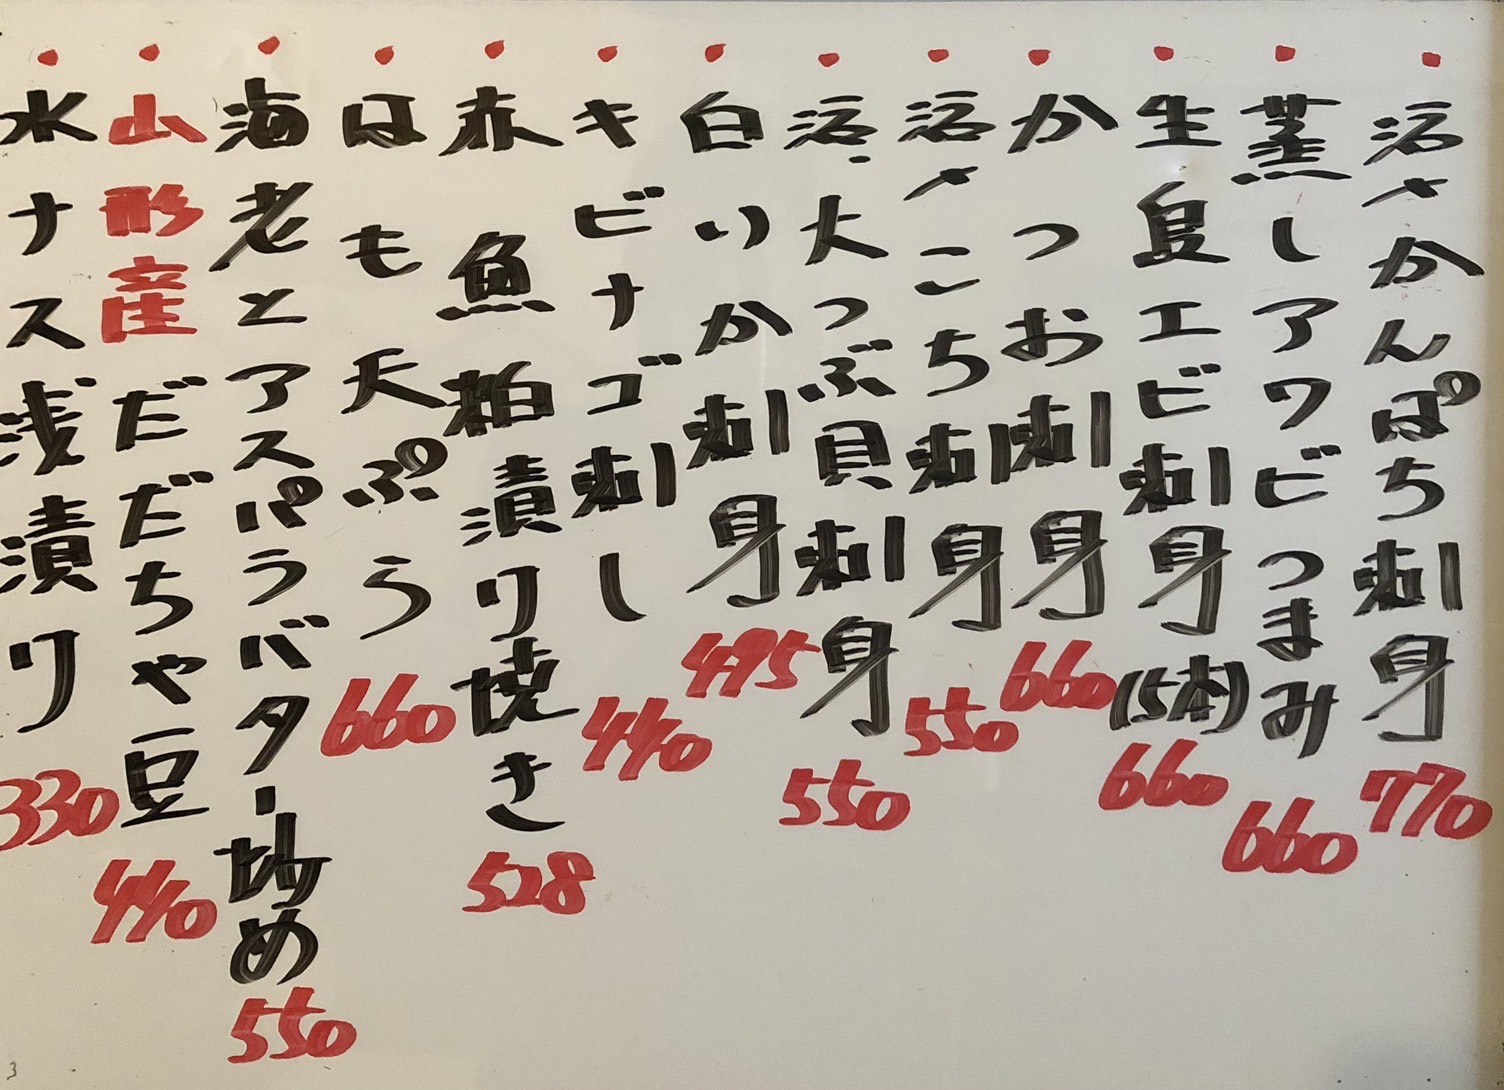 活〆かんぱち刺身 770
蒸しアワビつまみ 660
生島エビ刺身(5本) 660
かつお刺身 660
活〆こち刺身 550
活、大つぶ貝刺身 550
白いか刺身 495
キビナゴ刺し 440
赤魚粕漬り焼き 528
はも天ぷら 660
海老とアスパラバター炒め 550
山形産だだちゃ豆 440
水ナス浅漬り 330
3